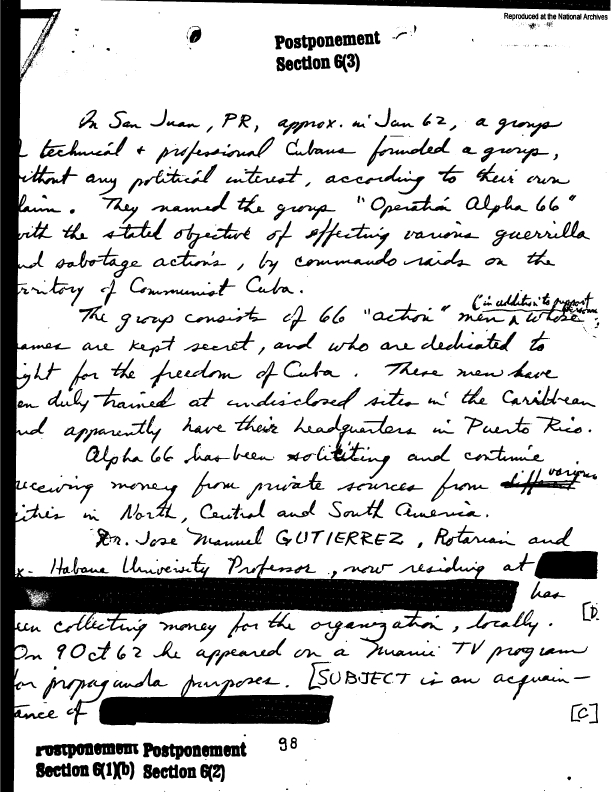 Reproduced at the National Archives
Postponement
Section 6(3)
In San Juan, PR, approx. in Jan 62, a group
technical + professional Cubans founded a group,
ithout any political interest, according to their own
laim. They named the group "Operation Alpha 66"
with the stated objective of effecting various guerrilla
nd sabotage actions, by commando raids on the
rritory of Communist Cuba.
(in addition to support
The group consists of 66 "action" men ∧ whose
ames are kept secret, and who are dedicated to
ght for the freedom of Cuba. These men have
en duly trained at undisclosed sites in the Caribbean
nd apparently have their headquarters in Puerto Rico.
Alpha 66 has been soliciting and continue
various
eceiving money from private sources from different
ities in North, Central and South America.
Dr. Jose Manuel GUTIERREZ, Rotarian and
x- Habana University Professor, now residing at
has
[D
een collecting money for the organization, locally.
On 9 Oct 62 he appeared on a Miami TV program
or propaganda purposes. [SUBJECT is an acquain-
tance of
[C]
98
Postponement Postponement
Section 6(1)(b) Section 6(2)